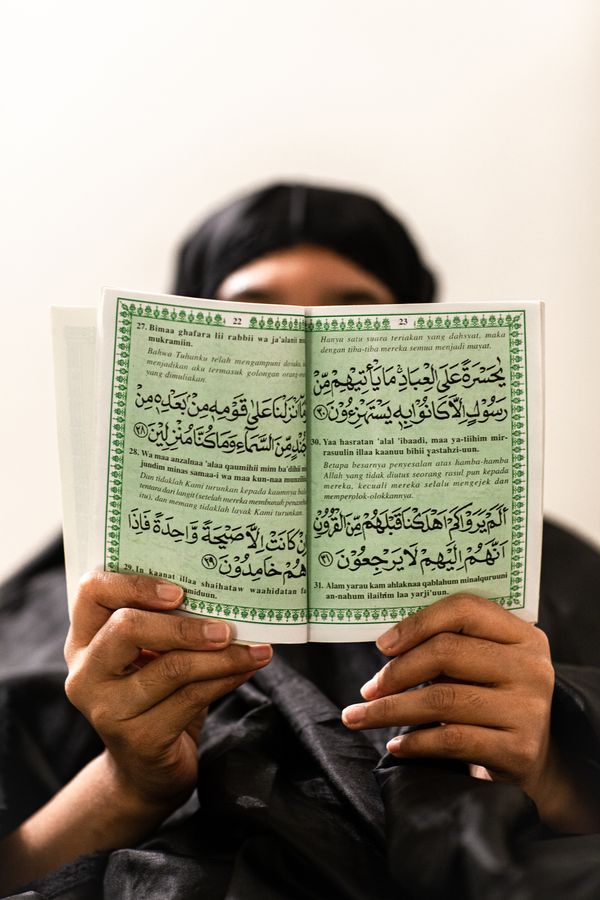 22
27. Bimaa ghafara lii rabbii wa ja'alanii
mukramiin.
Bahwa Tuhanku telah mengampuni
menjadikan aku termasuk golongan
yang dimuliakan.
مَآاَنْزَلْنَا عَلٰى قَوْمِهٖ مِنْۢ بَعْدِهٖ مِنْ
مِّنَ السَّمَآءِ وَمَا كُنَّا مُنْزِلِيْنَ ﴿٢٨﴾
28. Wa maa anzalnaa 'alaa qaumihii mim ba'dihii
jundim minas samaa-i wa maa kun-naa
Dan tidaklah Kami turunkan kepada kaumnya
tentara dari langit (setelah mereka membunuh
itu), dan memang tidak layak Kami turunkan.
كَانَتْ اِلَّا صَيْحَةً وَّاحِدَةً فَاِذَا
هُمْ خَامِدُوْنَ ﴿٢٩﴾
29. In kaanat illaa shaihataw waahidatan
23
Hanya satu suara teriakan yang dahsyat, maka
dengan tiba-tiba mereka semua menjadi mayat.
يٰحَسْرَةً عَلَى الْعِبَادِۚ مَا يَأْتِيْهِمْ مِّنْ
رَّسُوْلٍ اِلَّا كَانُوْا بِهٖ يَسْتَهْزِءُوْنَ ﴿٣٠﴾
30. Yaa hasratan 'alal 'ibaadi, maa ya-tiihim mir-
rasuulin illaa kaanuu bihii yastahzi-uun.
Betapa besarnya penyesalan atas hamba-hamba
Allah yang tidak diutus seorang rasul pun kepada
mereka, kecuali mereka selalu mengejek dan
memperolok-olokkannya.
اَلَمْ يَرَوْا كَمْ اَهْلَكْنَا قَبْلَهُمْ مِّنَ الْقُرُوْنِ
اَنَّهُمْ اِلَيْهِمْ لَا يَرْجِعُوْنَ ﴿٣١﴾
31. Alam yarau kam ahlaknaa qablahum minalquruuni
an-nahum ilaihim laa yarji'uun.